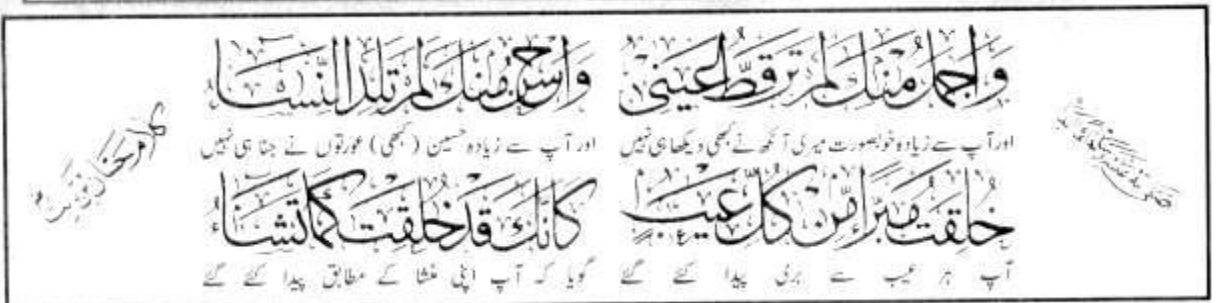 وَاَجْمَلُ مِنْكَ لَمْ تَرَ قَطُّ عَيْنِیْ وَاَحْسَنُ مِنْكَ لَمْ تَلِدِ النِّسَآءُ
اور آپ سے زیادہ خوبصورت میری آنکھ نے کبھی دیکھا ہی نہیں اور آپ سے زیادہ حسین (کبھی) عورتوں نے جنا ہی نہیں
خُلِقْتَ مُبَرَّأً مِّنْ كُلِّ عَيْبٍ كَاَنَّكَ قَدْ خُلِقْتَ كَمَا تَشَآءُ
آپ ہر عیب سے بری پیدا کئے گئے گویا کہ آپ اپنی منشا کے مطابق پیدا کئے گئے